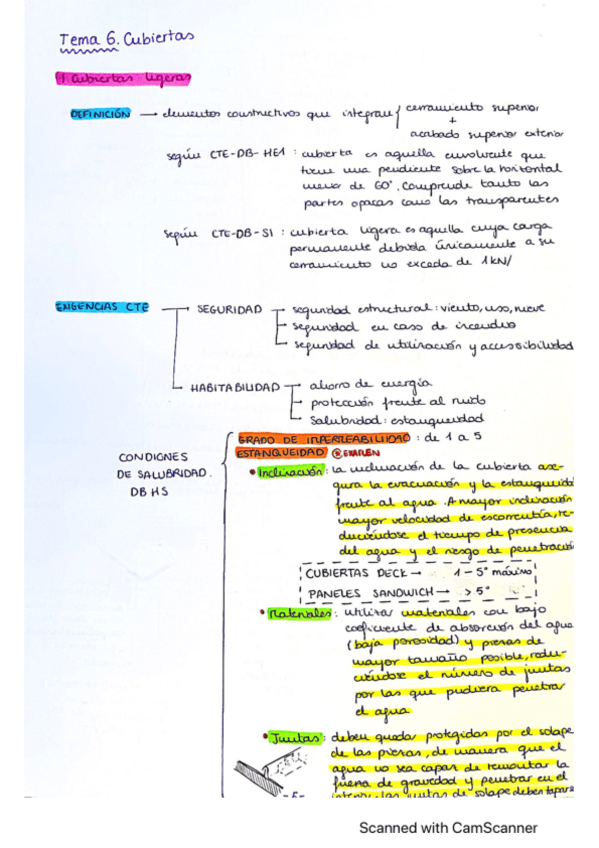 Tema 6. Cubiertas
1 Cubiertas ligeras
DEFINICIÓN → elementos constructivos que integran { cerramiento superior
+
acabado superior exterior
según CTE-DB-HE1 : cubierta es aquella envolvente que
tiene una pendiente sobre la horizontal
menor de 60°. Comprende tanto las
partes opacas como las transparentes
según CTE-DB-SI : cubierta ligera es aquella cuya carga
permanente debida únicamente a su
cerramiento no exceda de 1 kN/
EXIGENCIAS CTE
SEGURIDAD
seguridad estructural: viento, uso, nieve
seguridad en caso de incendio
seguridad de utilización y accesibilidad
HABITABILIDAD
ahorro de energía
protección frente al ruido
Salubridad: estanqueidad
CONDIONES
DE SALUBRIDAD.
DB HS
GRADO DE IMPERMEABILIDAD : de 1 a 5
ESTANQUEIDAD EXAMEN
• Inclinación: la inclinación de la cubierta ase-
gura la evacuación y la estanquidad
frente al agua. A mayor inclinación
mayor velocidad de escorrentía, re-
duciéndose el tiempo de presencia
del agua y el riesgo de penetración
CUBIERTAS DECK → 1 - 5° máximo
PANELES SANDWICH → > 5°
• Materiales: utilizar materiales con bajo
coeficiente de absorción del agua
(baja porosidad) y piezas de
mayor tamaño posible, redu-
ciéndose el número de juntas
por las que pudiera penetrar
el agua
• Juntas: deben quedar protegidas por el solape
de las piezas, de manera que el
agua no sea capaz de remontar la
fuerza de gravedad y penetrar en el
las juntas de solape deben
Scanned with CamScanner